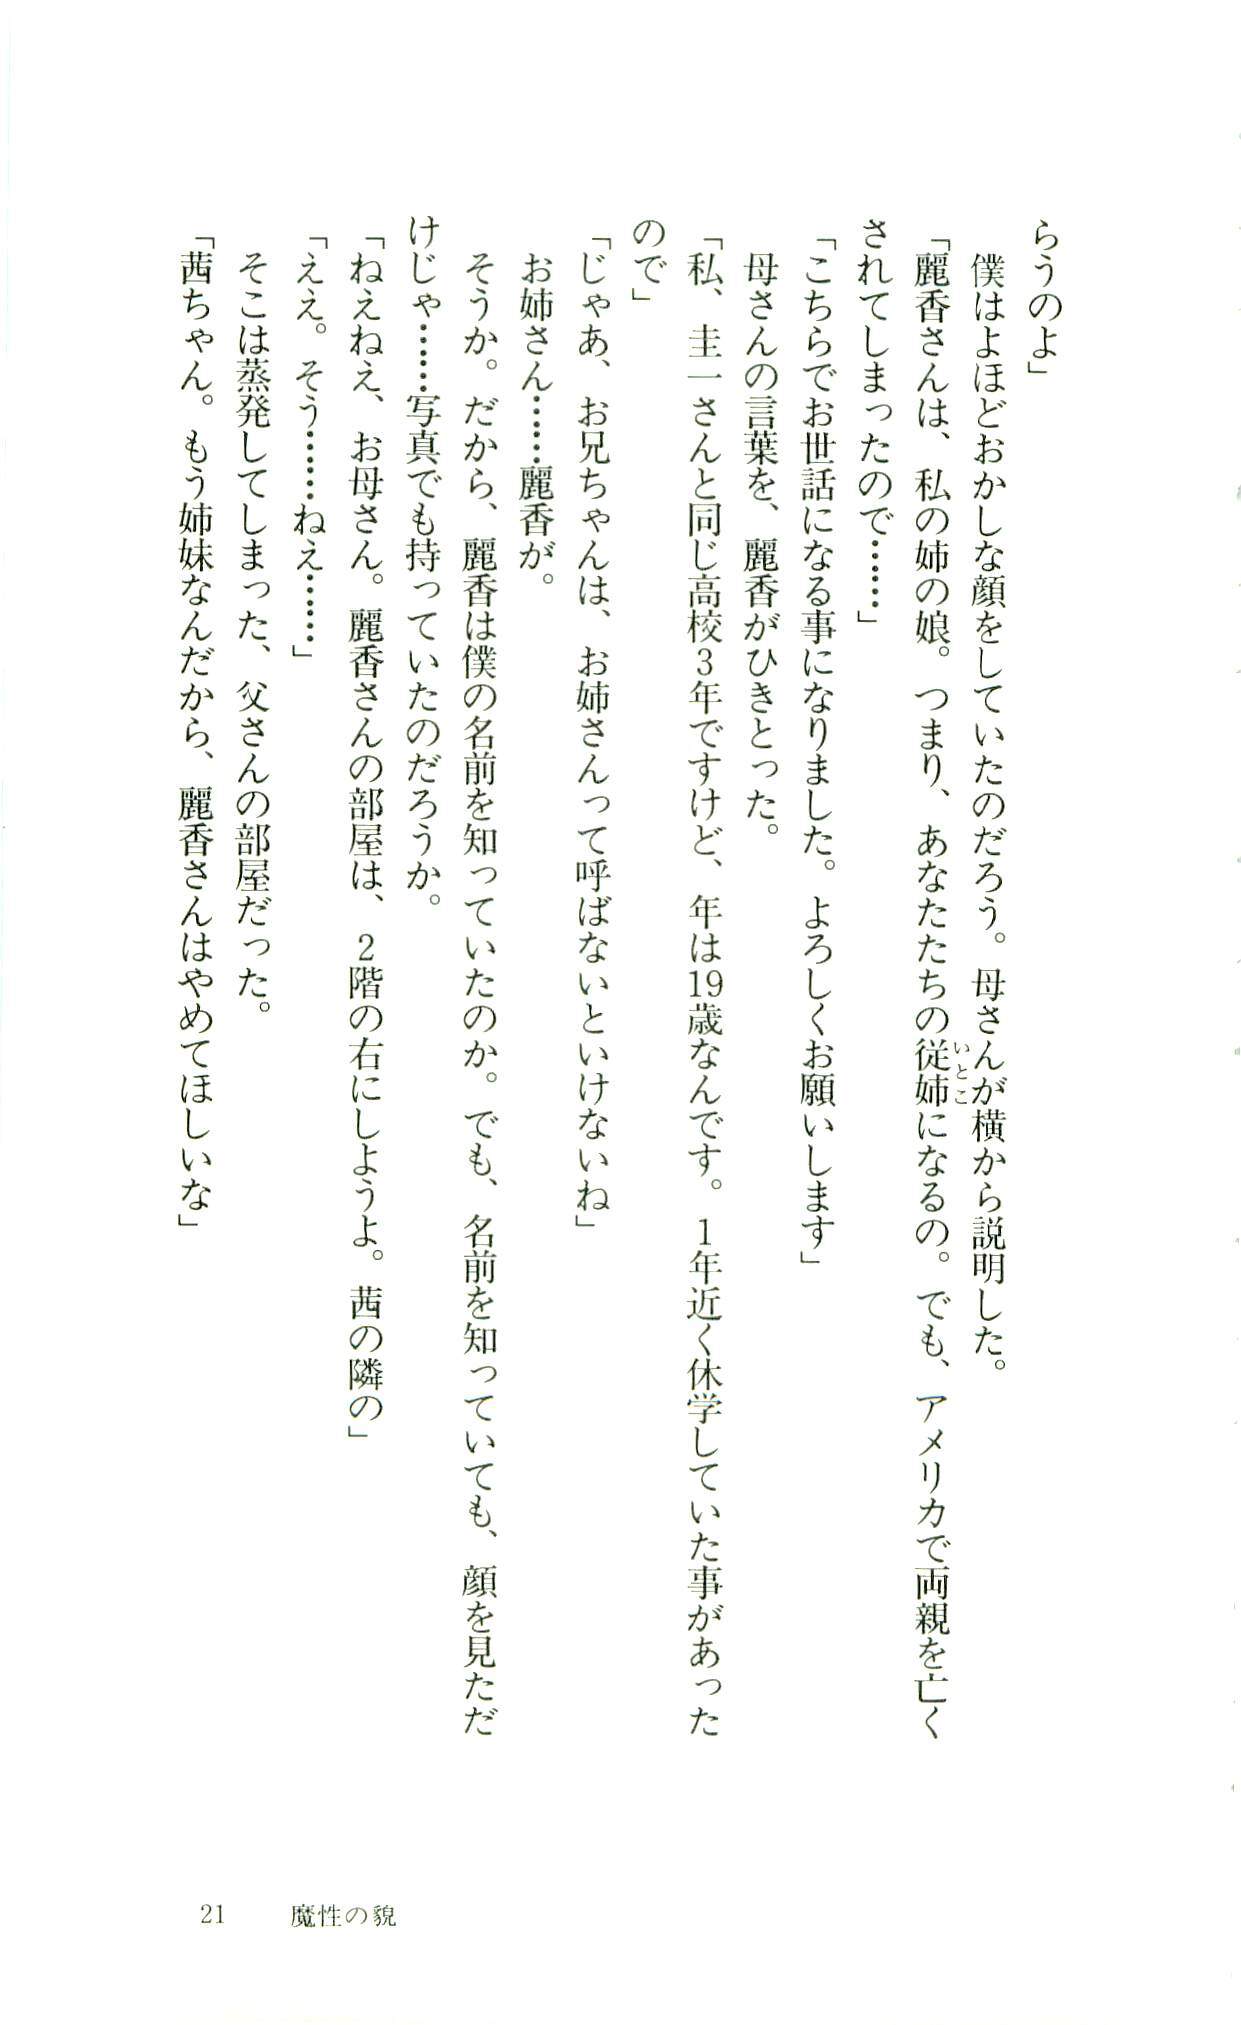 らうのよ」
僕はよほどおかしな顔をしていたのだろう。母さんが横から説明した。
「麗香さんは、私の姉の娘。つまり、あなたたちの従姉になるの。でも、アメリカで両親を亡く
いとこ
されてしまったので……」
「こちらでお世話になる事になりました。よろしくお願いします」
母さんの言葉を、麗香がひきとった。
「私、圭一さんと同じ高校3年ですけど、年は19歳なんです。1年近く休学していた事があった
ので」
「じゃあ、お兄ちゃんは、お姉さんって呼ばないといけないね」
お姉さん……麗香が。
そうか。だから、麗香は僕の名前を知っていたのか。でも、名前を知っていても、顔を見ただ
けじゃ……写真でも持っていたのだろうか。
「ねえねえ、お母さん。麗香さんの部屋は、2階の右にしようよ。茜の隣の」
「ええ。そう……ねえ……」
そこは蒸発してしまった、父さんの部屋だった。
「茜ちゃん。もう姉妹なんだから、麗香さんはやめてほしいな」
21 魔性の貌